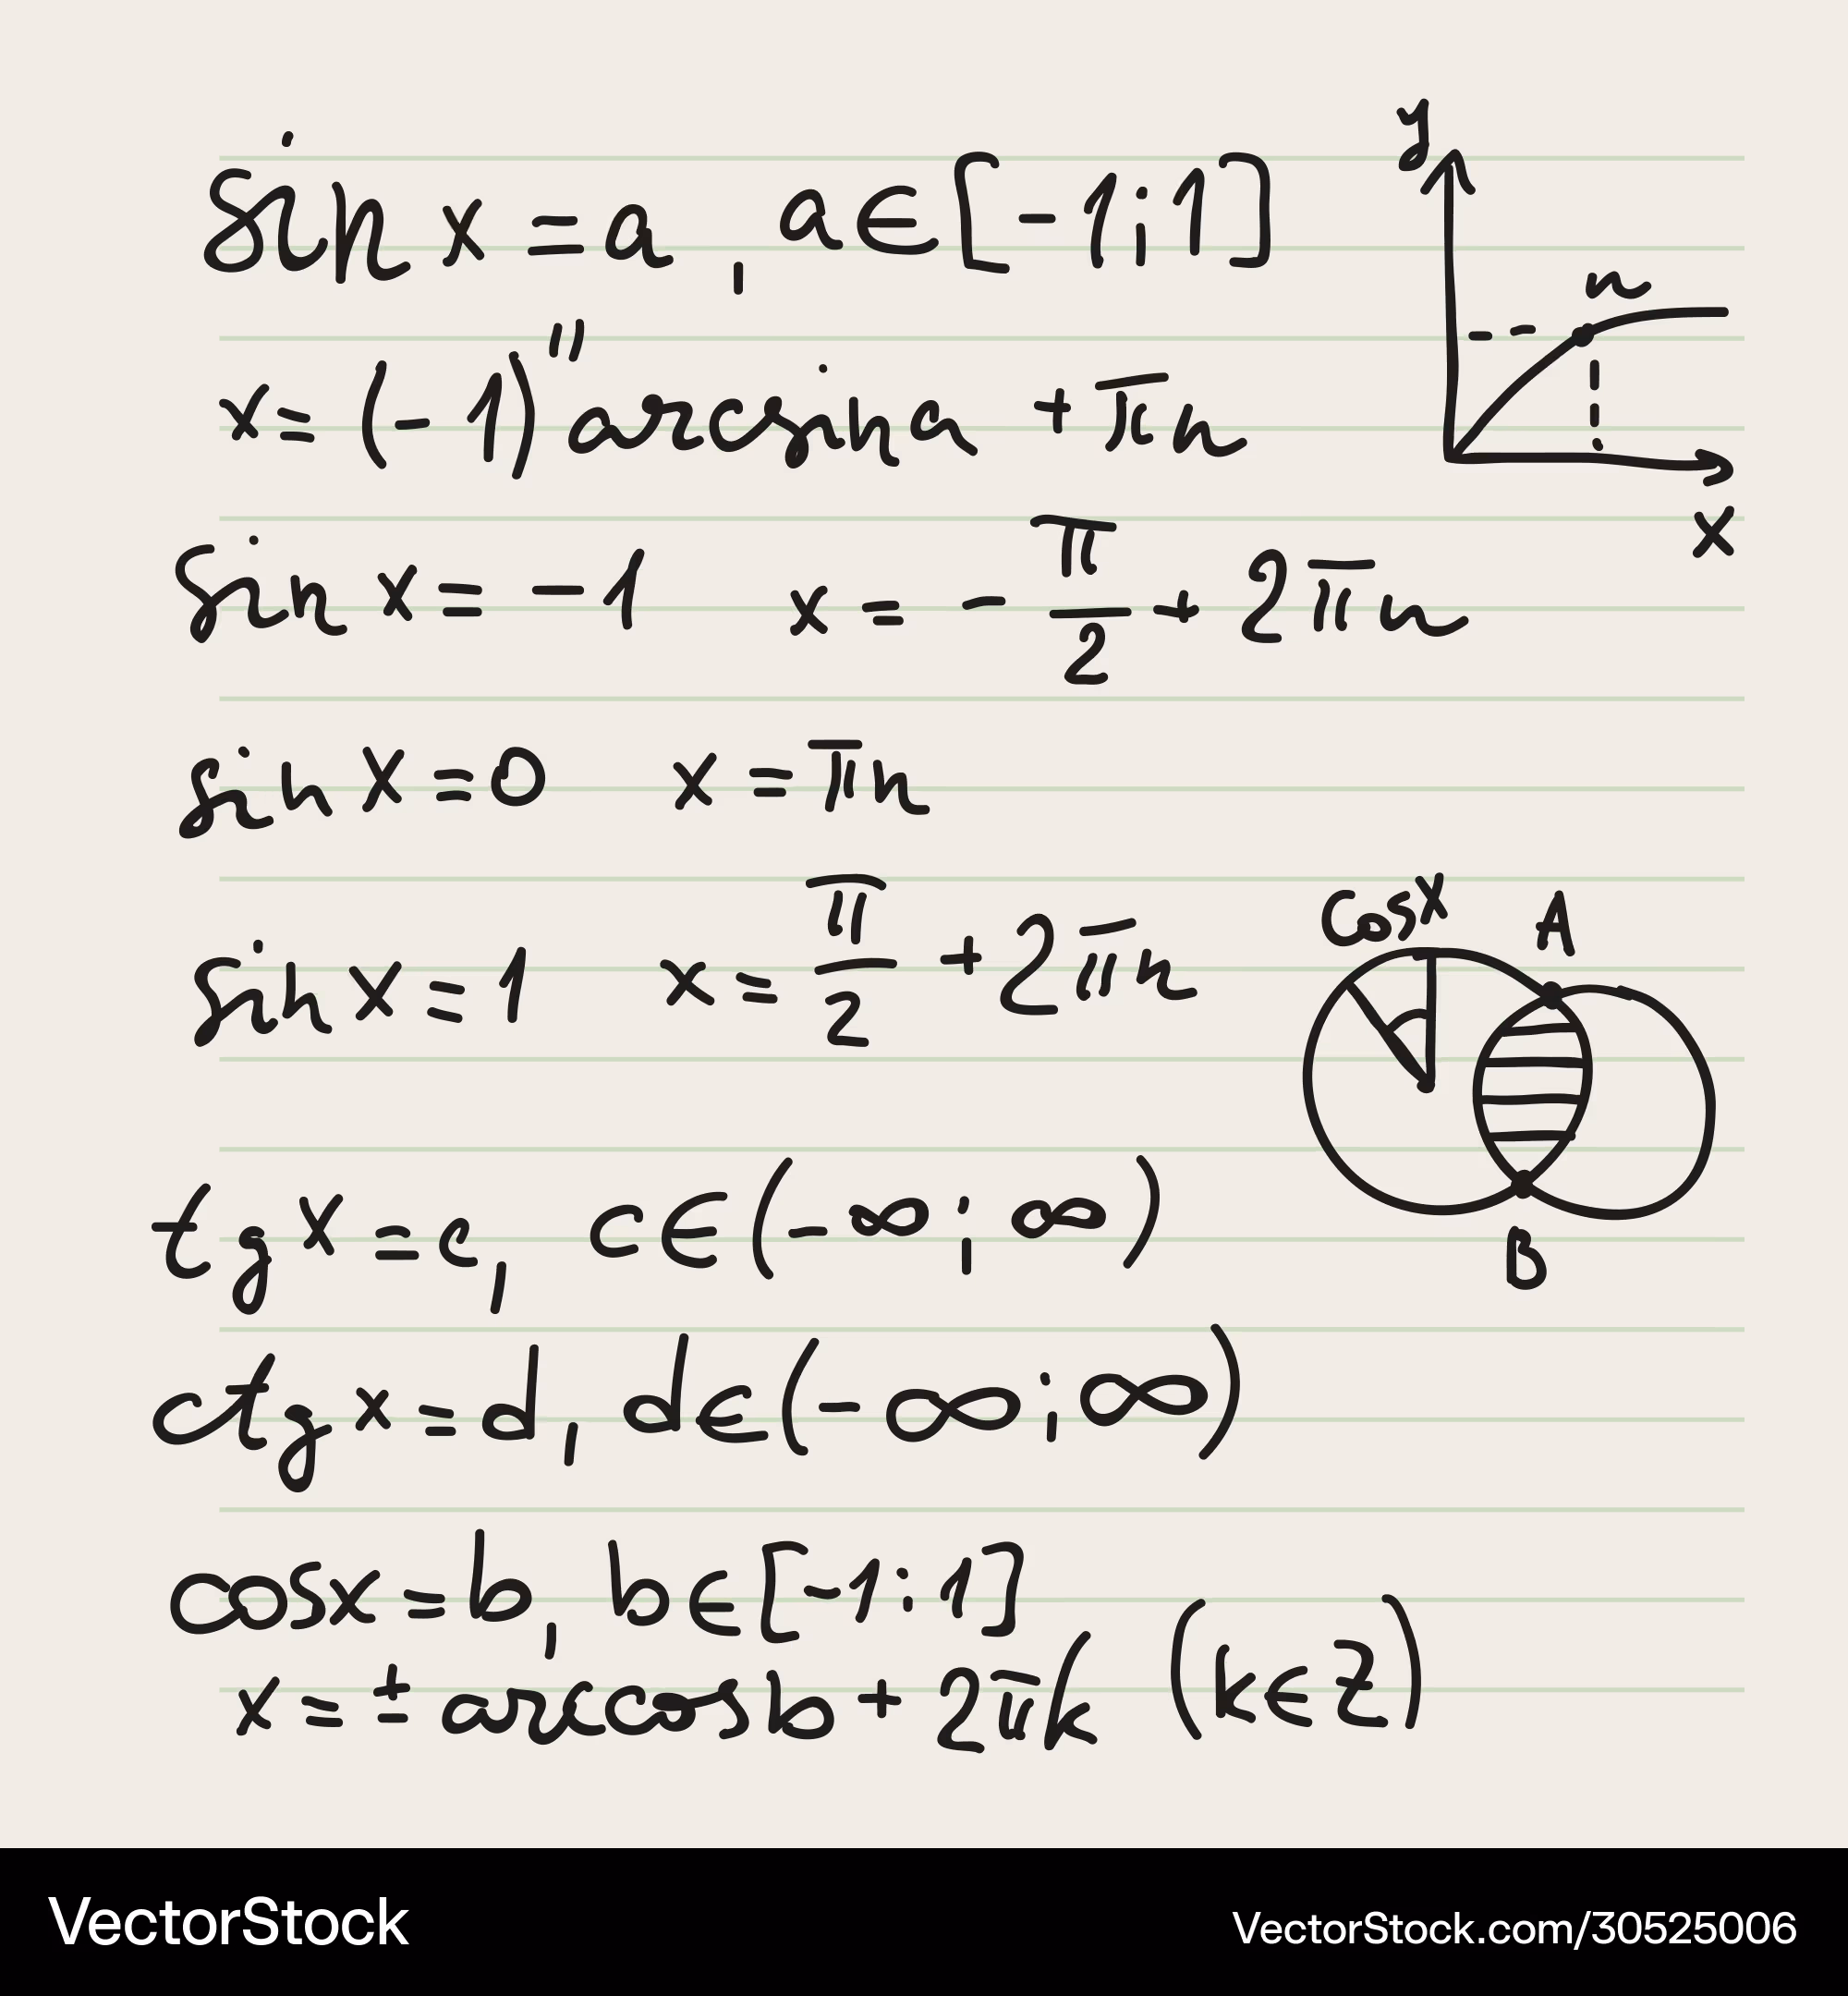 y
sin x = a, a∈[-1;1]
n
x = (-1)" arcsin a + πn
x
sin x = -1 x = - π/2 + 2πn
sin x = 0 x = πn
sin x = 1 x = π/2 + 2πn
cosx A
tg x = c, c∈(-∞;∞)
B
ctg x = d, d∈(-∞;∞)
cosx = b, b∈[-1;1]
x = ± arccos b + 2πk (k∈Z)
VectorStock
VectorStock.com/30525006